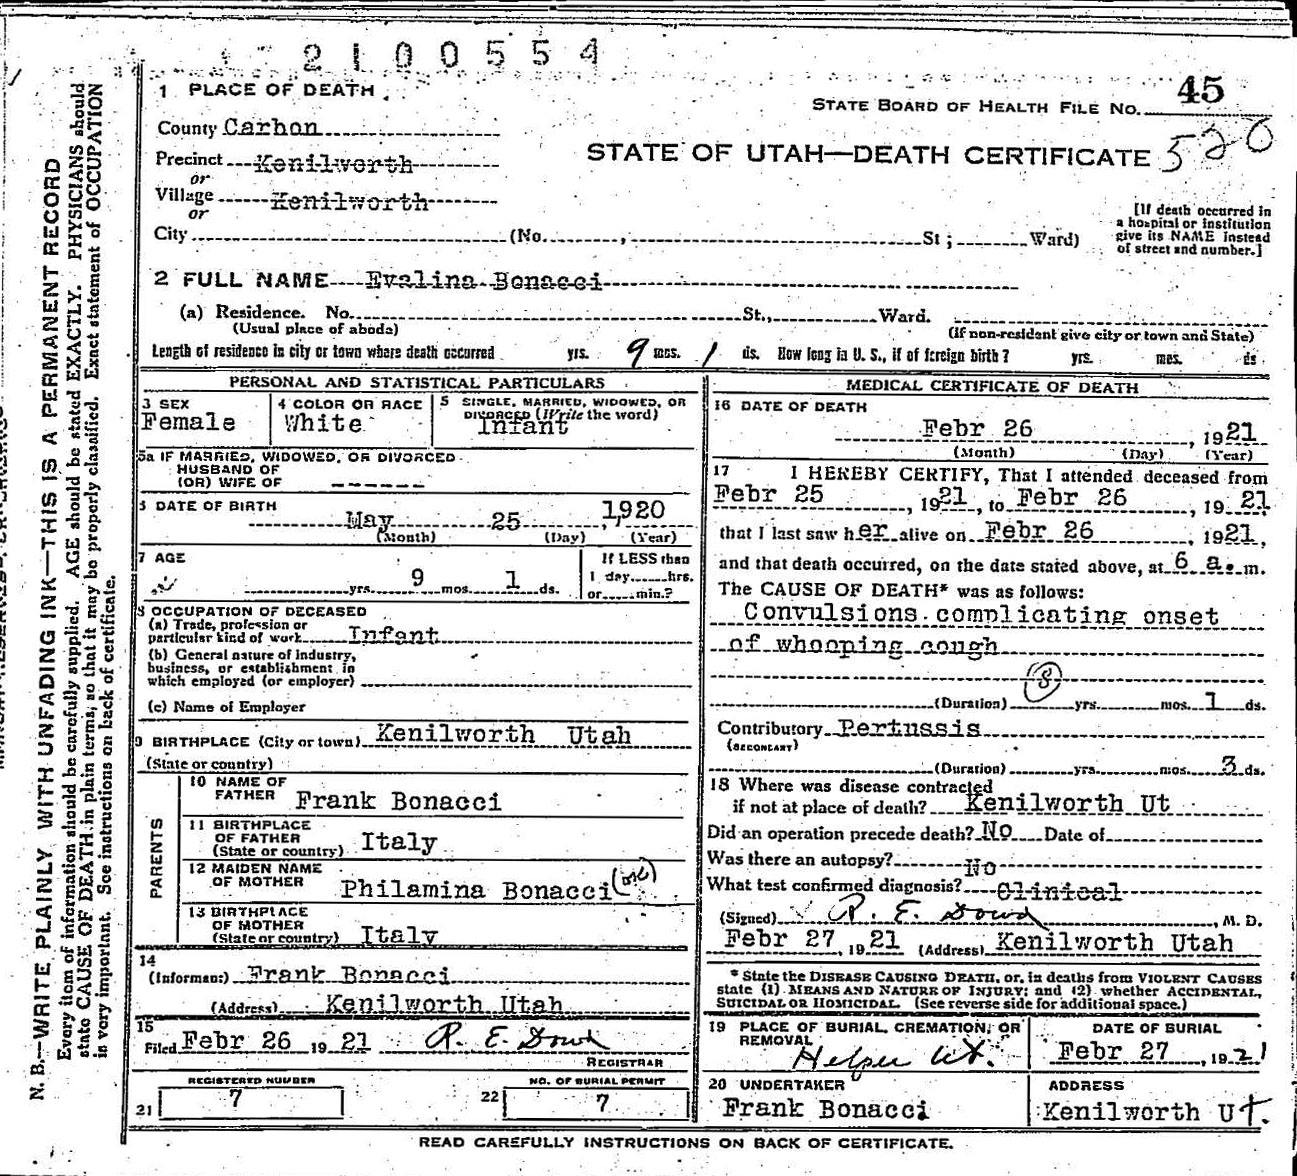 2100554
1 PLACE OF DEATH
STATE BOARD OF HEALTH FILE NO. 45
County Carbon
STATE OF UTAH—DEATH CERTIFICATE 520
Precinct Kenilworth
or
Village Kenilworth
or
City (No. , St ; Ward)
[If death occurred in
a hospital or institution
give its NAME instead
of street and number.]
2 FULL NAME Evalina Bonacci
(a) Residence. No. St., Ward.
(Usual place of abode) (If non-resident give city or town and State)
Length of residence in city or town where death occurred yrs. 9 mos. 1 ds. How long in U. S., if of foreign birth? yrs. mos. ds
PERSONAL AND STATISTICAL PARTICULARS
3 SEX
Female
4 COLOR OR RACE
White
5 SINGLE, MARRIED, WIDOWED, OR
DIVORCED (Write the word)
Infant
5a IF MARRIED, WIDOWED, OR DIVORCED
HUSBAND OF
(OR) WIFE OF ------
6 DATE OF BIRTH
May 25, 1920
(Month) (Day) (Year)
7 AGE
yrs. 9 mos. 1 ds.
If LESS than
1 day hrs.
or min.?
8 OCCUPATION OF DECEASED
(a) Trade, profession or
particular kind of work Infant
(b) General nature of industry,
business, or establishment in
which employed (or employer)
(c) Name of Employer
9 BIRTHPLACE (City or town) Kenilworth Utah
(State or country)
PARENTS
10 NAME OF
FATHER Frank Bonacci
11 BIRTHPLACE
OF FATHER
(State or country) Italy
12 MAIDEN NAME
OF MOTHER Philamina Bonacci
13 BIRTHPLACE
OF MOTHER
(State or country) Italy
14
(Informant) Frank Bonacci
(Address) Kenilworth Utah
15
Filed Febr 26 1921 R. E. Dowd
REGISTRAR
REGISTERED NUMBER
21 7
NO. OF BURIAL PERMIT
22 7
MEDICAL CERTIFICATE OF DEATH
16 DATE OF DEATH
Febr 26, 1921
(Month) (Day) (Year)
17 I HEREBY CERTIFY, That I attended deceased from
Febr 25, 1921, to Febr 26, 1921
that I last saw her alive on Febr 26, 1921,
and that death occurred, on the date stated above, at 6 a. m.
The CAUSE OF DEATH* was as follows:
Convulsions complicating onset
of whooping cough
(8)
(Duration) yrs. mos. 1 ds.
Contributory Pertussis
(SECONDARY)
(Duration) yrs. mos. 3 ds.
18 Where was disease contracted
if not at place of death? Kenilworth Ut
Did an operation precede death? No Date of
Was there an autopsy? No
What test confirmed diagnosis? Clinical
(Signed) R. E. Dowd, M. D.
Febr 27, 1921 (Address) Kenilworth Utah
* State the DISEASE CAUSING DEATH, or, in deaths from VIOLENT CAUSES
state (1) MEANS AND NATURE OF INJURY; and (2) whether ACCIDENTAL,
SUICIDAL OR HOMICIDAL. (See reverse side for additional space.)
19 PLACE OF BURIAL, CREMATION, OR
REMOVAL
Helper Ut.
DATE OF BURIAL
Febr 27, 1921
20 UNDERTAKER
Frank Bonacci
ADDRESS
Kenilworth Ut.
READ CAREFULLY INSTRUCTIONS ON BACK OF CERTIFICATE.
N. B.—WRITE PLAINLY WITH UNFADING INK—THIS IS A PERMANENT RECORD
Every item of information should be carefully supplied. AGE should be stated EXACTLY. PHYSICIANS should
state CAUSE OF DEATH in plain terms, so that it may be properly classified. Exact statement of OCCUPATION
is very important. See instructions on back of certificate.